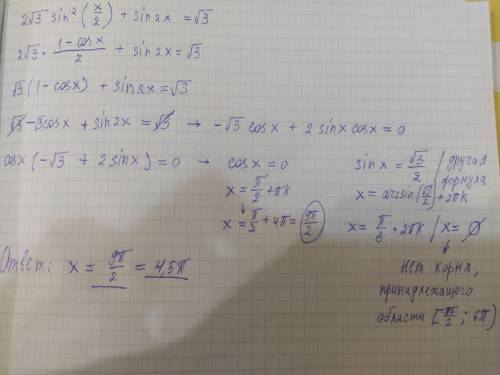 2√3 sin² (x/2) + sin2x = √3
2√3 · (1-cosx)/2 + sin2x = √3
√3 (1-cosx) + sin2x = √3
√3 - √3cosx + sin2x = √3 → -√3 cosx + 2 sinx cosx = 0
cosx (-√3 + 2sinx) = 0 → cosx = 0
x = π/2 + πk
↓
x = π/2 + 4π = 9π/2
sinx = √3/2 / другая формула
x = arcsin(√3/2) + 2πk
x = π/3 + 2πk / x = ∅
↓
нет корня,
принадлежащего
области [9π/2; 6π)
Ответ: x = 9π/2 = 4,5π